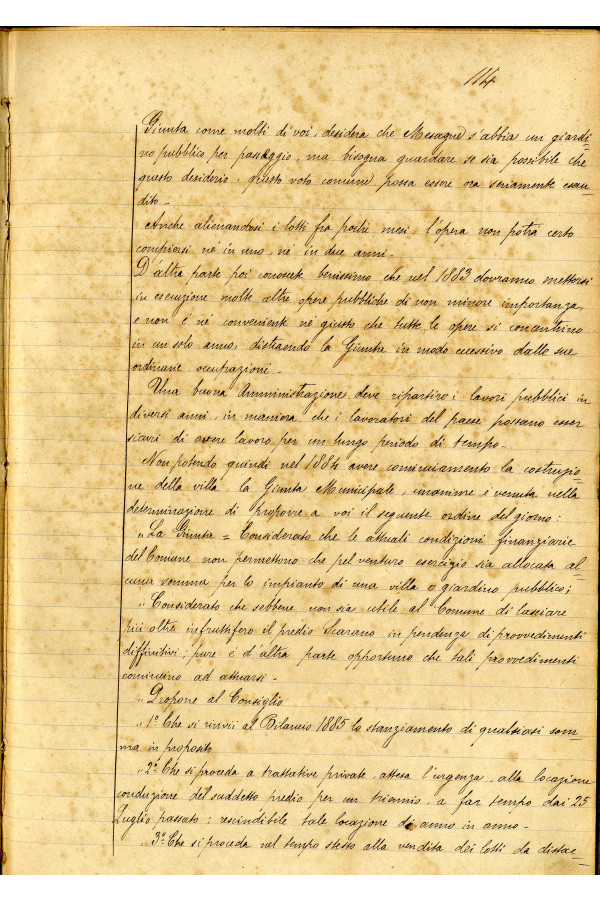 114
Giunta come molti di voi, desidera che Mesagne s'abbia un giardi=
no pubblico per passeggio, ma bisogna guardare se sia possibile che
questo desiderio, questo voto comune, possa essere ora seriamente esau=
dito.
Anche alienandosi i lotti fra pochi mesi, l'opera non potrà certo
compiersi nè in uno, nè in due anni.
D'altra parte poi conoscete benissimo che nel 1883 dovranno mettersi
in esecuzione molte altre opere pubbliche di non minore importanza,
e non è nè conveniente nè giusto che tutte le opere si concentrino
in un solo anno, distraendo la Giunta in modo eccessivo dalle sue
ordinarie occupazioni.
Una buona Amministrazione deve ripartire i lavori pubblici in
diversi anni, in maniera che i lavoratori del paese possano esser
sicuri di avere lavoro per un lungo periodo di tempo.
Non potendo quindi nel 1884 avere cominciamento la costruzio=
ne della villa, la Giunta Municipale, unanime è venuta nella
determinazione di proporre a voi il seguente ordine del giorno:
"La Giunta = Considerato che le attuali condizioni finanziarie
del Comune non permettono che pel venturo esercizio sia allocata al=
cuna somma per lo impianto di una villa o giardino pubblico;
"Considerato che sebbene non sia utile al Comune di lasciare
più oltre infruttifero il predio Scarano in pendenza di provvedimenti
diffinitivi; pure è d'altra parte opportuno che tali provvedimenti
comincino ad attuarsi.
"Propone al Consiglio
"1º Che si rinvii al Bilancio 1885 lo stanziamento di qualsiasi som=
ma in proposito
"2º Che si proceda a trattative private, attesa l'urgenza, alla locazione
conduzione del suddetto predio per un triennio, a far tempo dai 25
Luglio passato; rescindibile tale locazione di anno in anno.
"3º Che si proceda nel tempo stesso alla vendita dei lotti da distac=